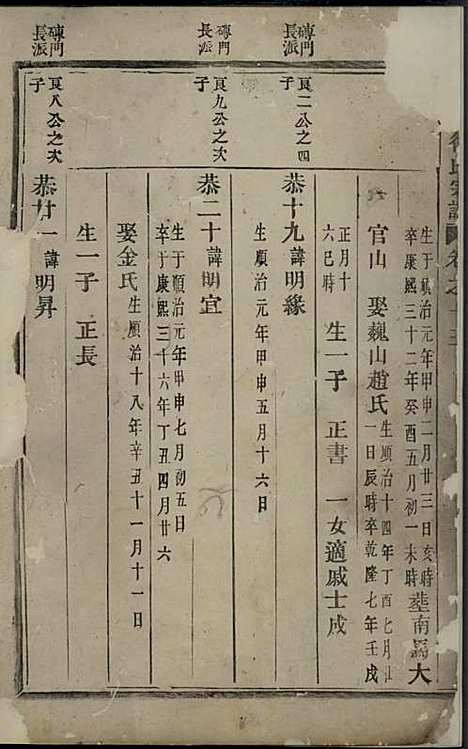 氏宗譜 卷之十三
生于順治元年甲申二月廿三日亥時
卒康熙三十二年癸酉五月初一未時 葬南 大
官山 娶魏山趙氏 生順治十四年丁酉七月
一日辰時卒乾隆七年壬戌
正月十
六巳時 生一子 正書 一女適戚士成
磚門
長派
良二公之四
子
恭十九 諱明緣
生順治元年甲申五月十六日
磚門
長派
良九公之次
子
恭二十 諱明宜
生于順治元年甲申七月初五日
卒于康熙三十六年丁丑四月廿六
娶金氏 生順治十八年辛丑十一月十一日
生一子 正長
磚門
長派
良八公之次
子
恭廿一 諱明昇